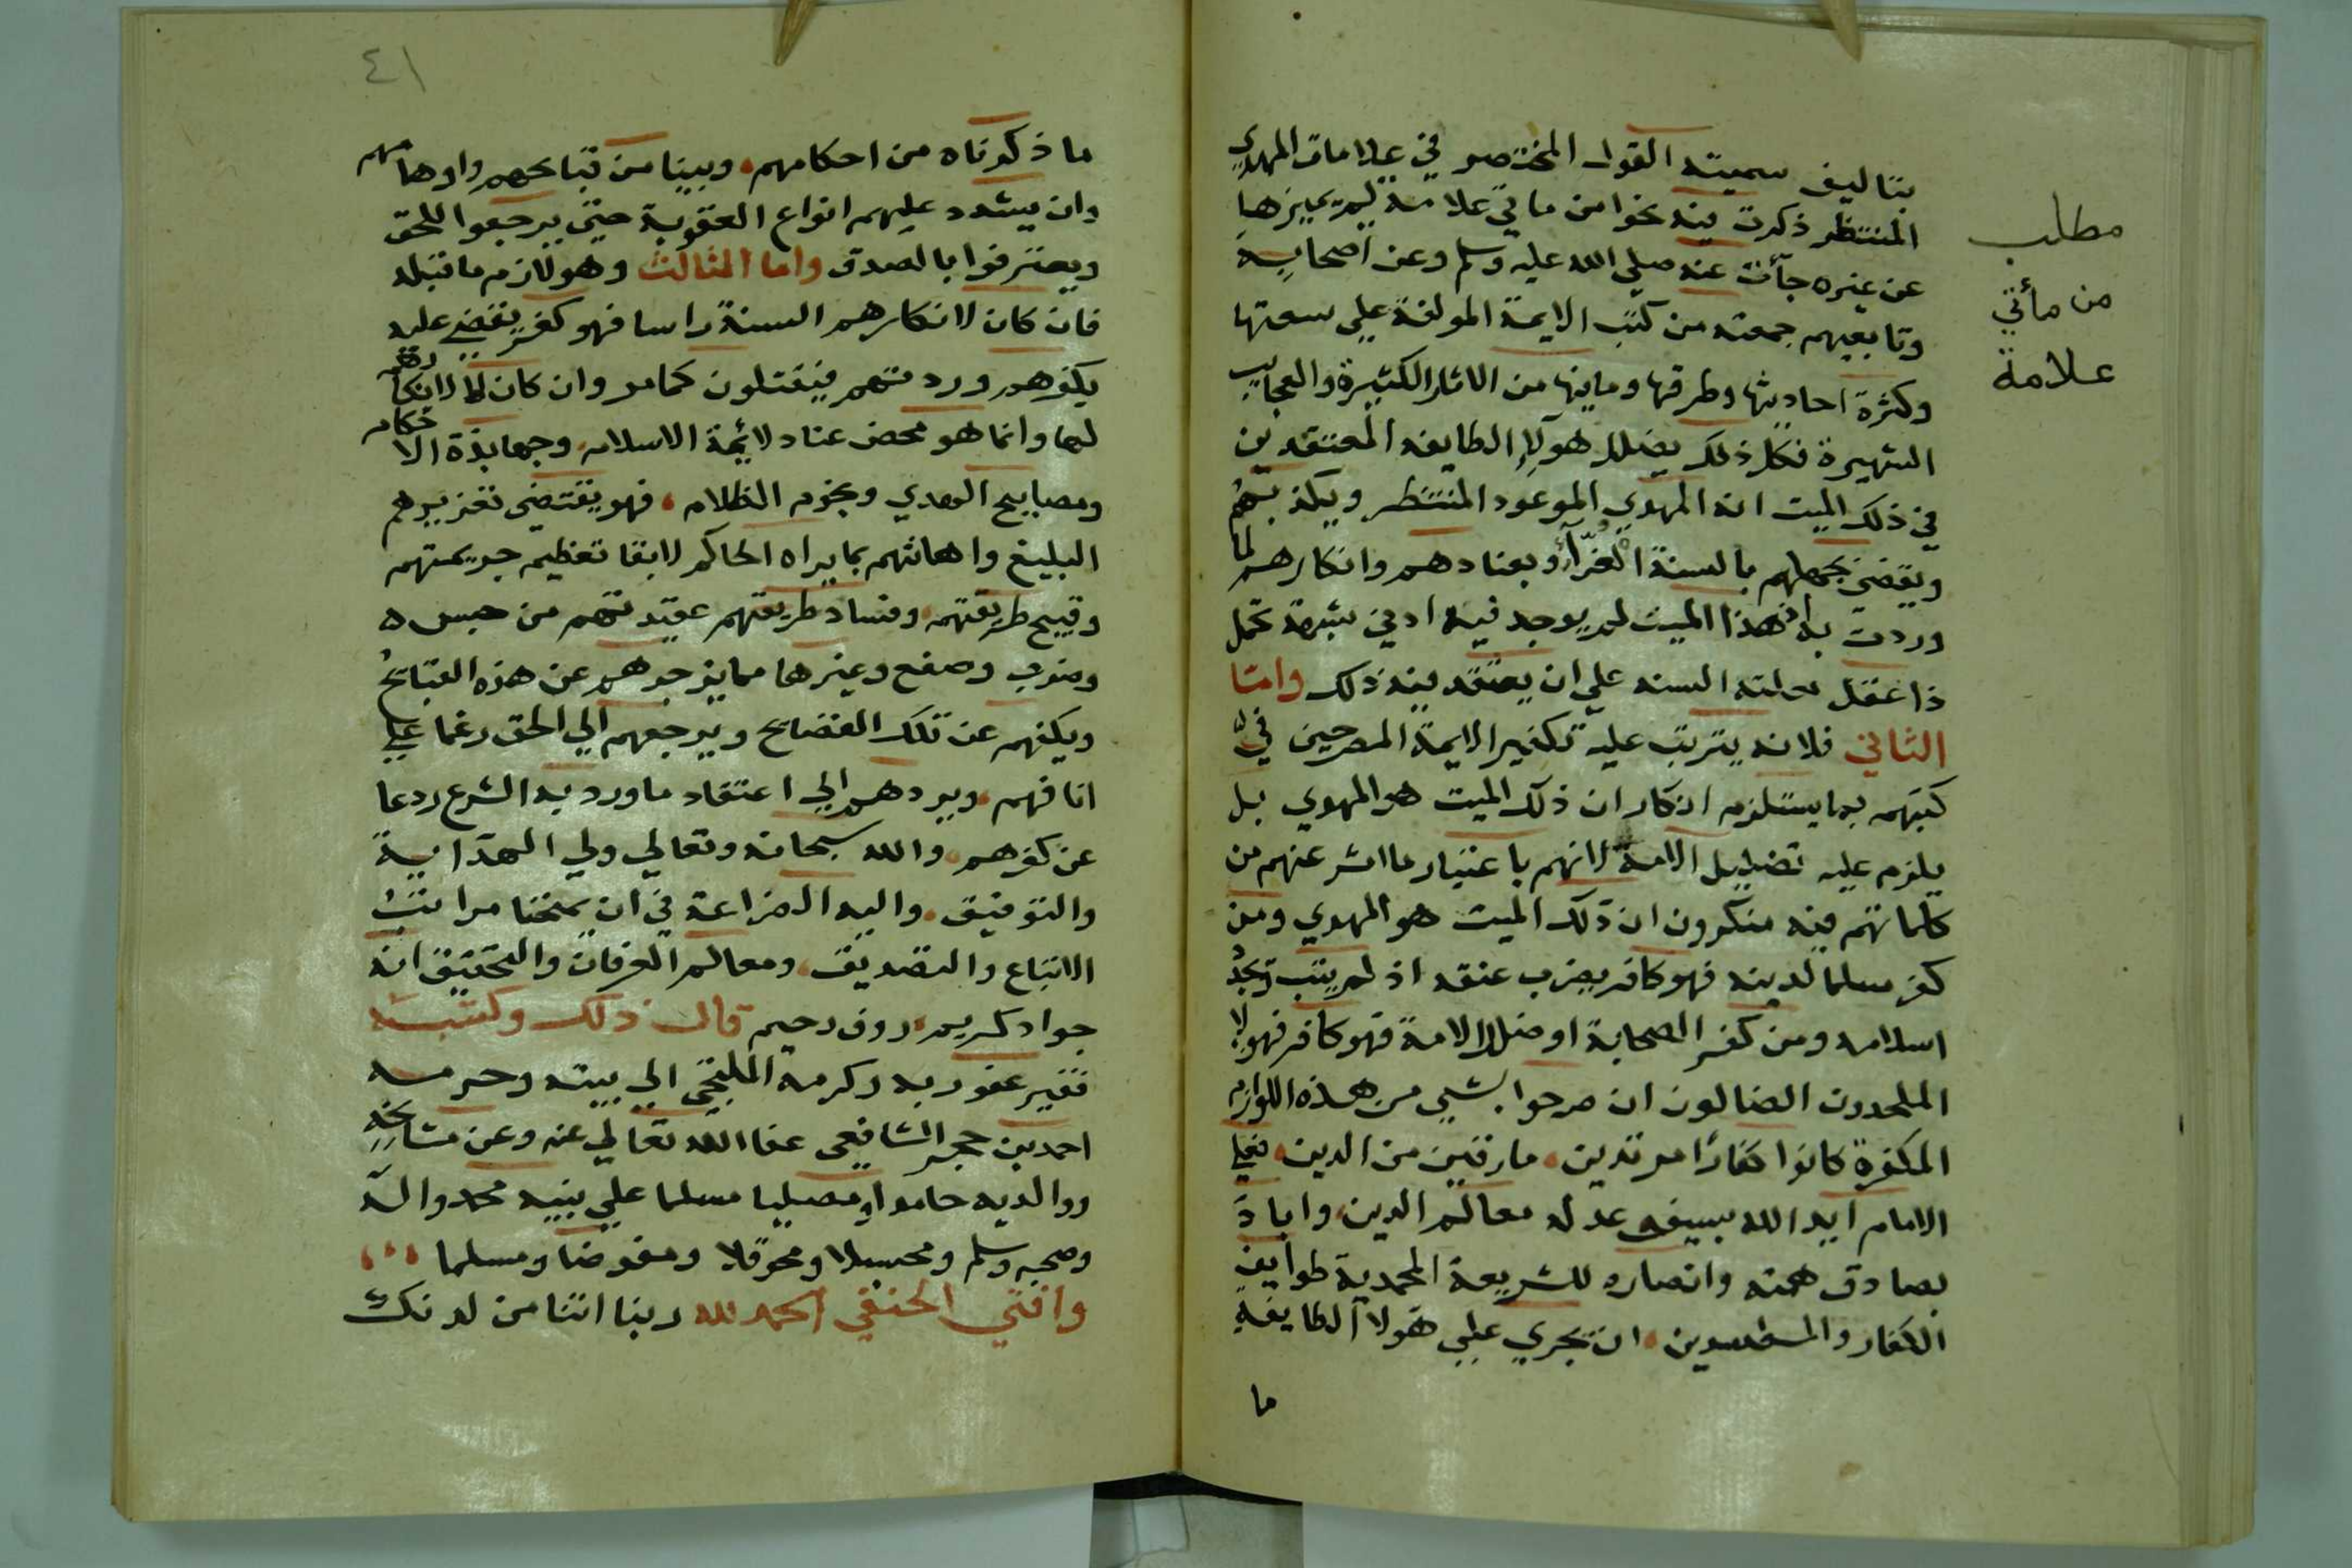 بتاليف سميته القول المختصر في علامات المهدي
المنتظر ذكرت فيه نحوا من مأتي علامة ليميزها
عن غيره جآءت عنه صلي الله عليه وسلم وعن اصحابه
وتابعيهم جمعته من كتب الايمة المولفة علي سعتها
وكثرة احاديثها وطرقها وما فيها من الاثار الكثيرة والعجايب
الشهيرة فكل ذلك يضلل هولاء الطايفه المعتقدين
في ذلك الميت انه المهدي الموعود المنتظر ويكذبهم
ويقضي بجهلهم بالسنة الغرآء وبعنادهم وانكارهم لما
وردت به اذ هذا الميت لم يوجد فيه ادني شبهة تحمل
ذا عقل السنه علي ان يعتقد فيه ذلك واما
الثاني فلانه يترتب عليه تكفير الايمة المصرحين في
كتبهم بما يستلزم انكار ان ذلك الميت هو المهدي بل
يلزم عليه تضليل الامة لانهم باعتبار ما اشر عنهم من
كلماتهم فيه منكرون ان ذلك الميت هو المهدي ومن
كفر مسلما لدينه فهو كافر يضرب عنقه اذ لم يتب ويجدد
اسلامه ومن كفر الصحابة او ضلل الامة فهو كافر فهولا
الملحدون الضالون ان صرحوا بشي من هذه اللوازم
المكفرة كانوا كفارا مرتدين مارقين من الدين فعلي
الامام ايد الله بسيف عدله معالم الدين واباد
بصادق همته وانصاره للشريعة المحمدية طوايف
الكفار والمفسدين ان يجري علي هولا الطايفة
ما
مطلب
من مأتي
علامة
٤١
ما ذكرناه من احكامهم وبينا من قبايحهم واوهامهم
وان يشدد عليهم انواع العقوبة حتي يرجعوا للحق
ويعترفوا بالصدق واما الثالث وهو لازم ما قبله
فان كان لانكارهم السنة راسا فهو كفر يقضي عليه
بكفرهم وردتهم فيقتلون كمامر وان كان لا لانكارهم
لها وانما هو محض عناد لائمة الاسلام وجهابذة الاحكام
ومصابيح الهدي ونجوم الظلام فهو يقتضي تعزيرهم
البليغ واهانتهم بما يراه الحاكم لايقا تعظيم جريمتهم
وقبيح طريقتهم وفساد طريقتهم عقيدتهم من حبس
وضرب وصفع وغيرها مما يزجرهم عن هذه القبايح
ويكفهم عن تلك الفضايح ويرجعهم الي الحق رغما علي
انافهم ويردهم الي اعتقاد ما ورد به الشرع ردعا
عن كفرهم والله سبحانه وتعالي ولي الهداية
والتوفيق واليه الضراعة في ان يمنحنا مراتب
الاتباع والتصديق ومعالم العرفان والتحقيق انه
جواد كريم روف رحيم قال ذلك وكتبه
فقير عفو ربه وكرمه الملتجي الي بيته وحرمه
احمد بن حجر الشافعي عفا الله تعالي عنه وعن مشايخه
ووالديه حامدا ومصليا مسلما علي نبيه محمد واله
وصحبه وسلم ومحسبلا ومحوقلا ومفوضا ومسلما
وافتي الحنفي الحمد لله ربنا اتنا من لدنك